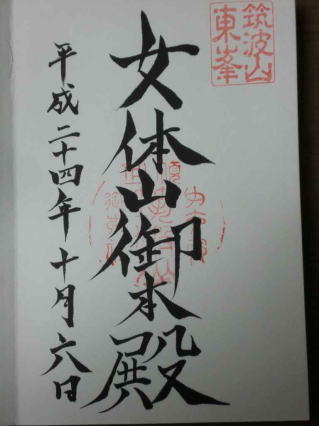 筑波山
東峯
女体山御本殿
平成二十四年十月六日